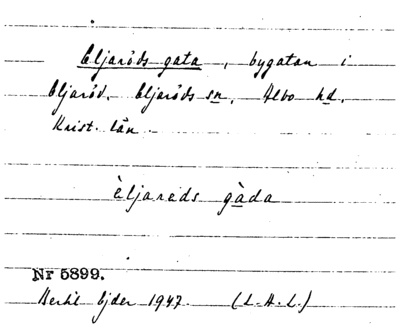 Eljaröds gata, bygatan i
Eljaröd. Eljaröds sn. Albo hd.
Krist. län.
èljaræds gàda
Nr 5899.
Bertil Ejder 1947 (L.A.L.)